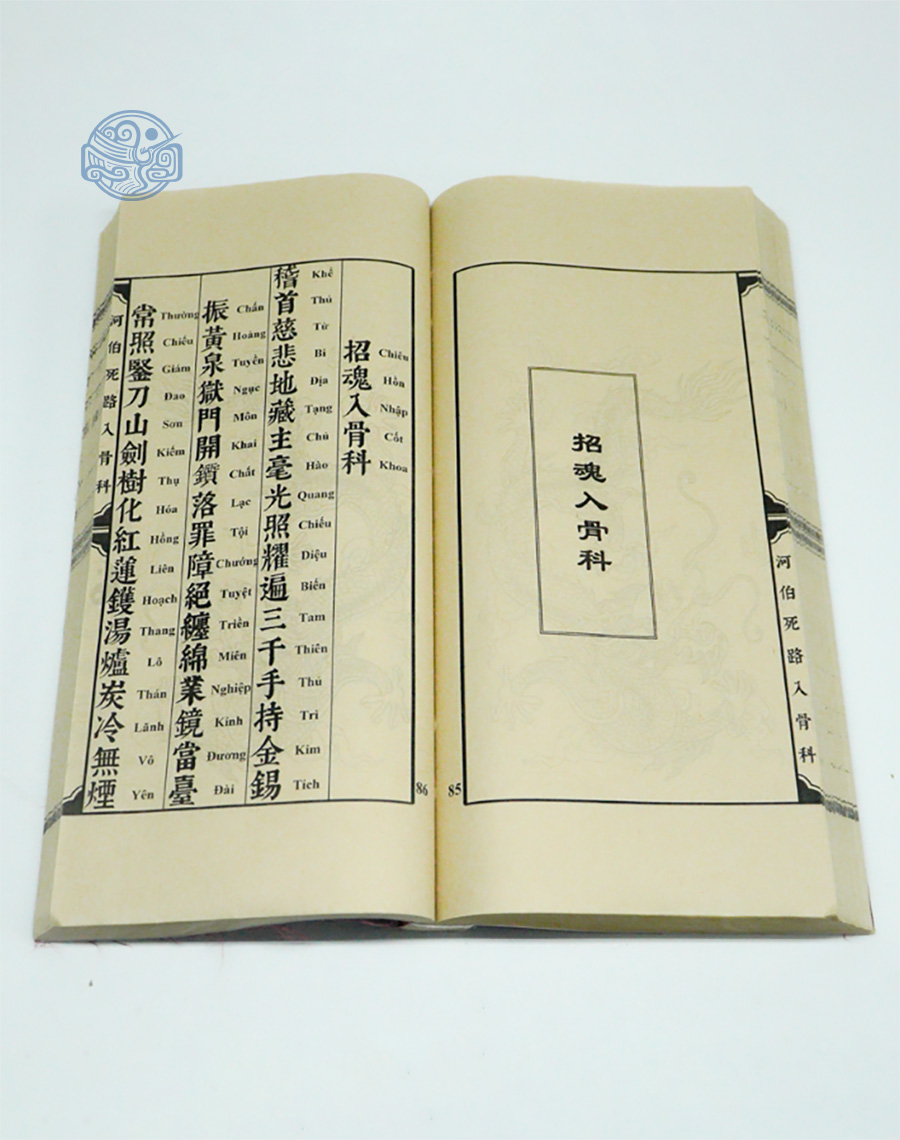 河伯死路入骨科
招魂入骨科
85
86
Chiêu Hồn Nhập Cốt Khoa
招魂入骨科
Khể Thủ Từ Bi Địa Tạng Chủ Hào Quang Chiếu Diệu Biến Tam Thiên Thủ Trì Kim Tích
稽首慈悲地藏主毫光照耀遍三千手持金錫
Chấn Hoàng Tuyền Ngục Môn Khai Chất Lạc Tội Chướng Tuyệt Triền Miên Nghiệp Kính Đương Đài
振黃泉獄門開鑕落罪障絕纏綿業鏡當臺
Thường Chiếu Giám Đao Sơn Kiếm Thụ Hóa Hồng Liên Hoạch Thang Lô Thán Lãnh Vô Yên
常照鑒刀山劍樹化紅蓮鑊湯爐炭冷無煙
河伯死路入骨科